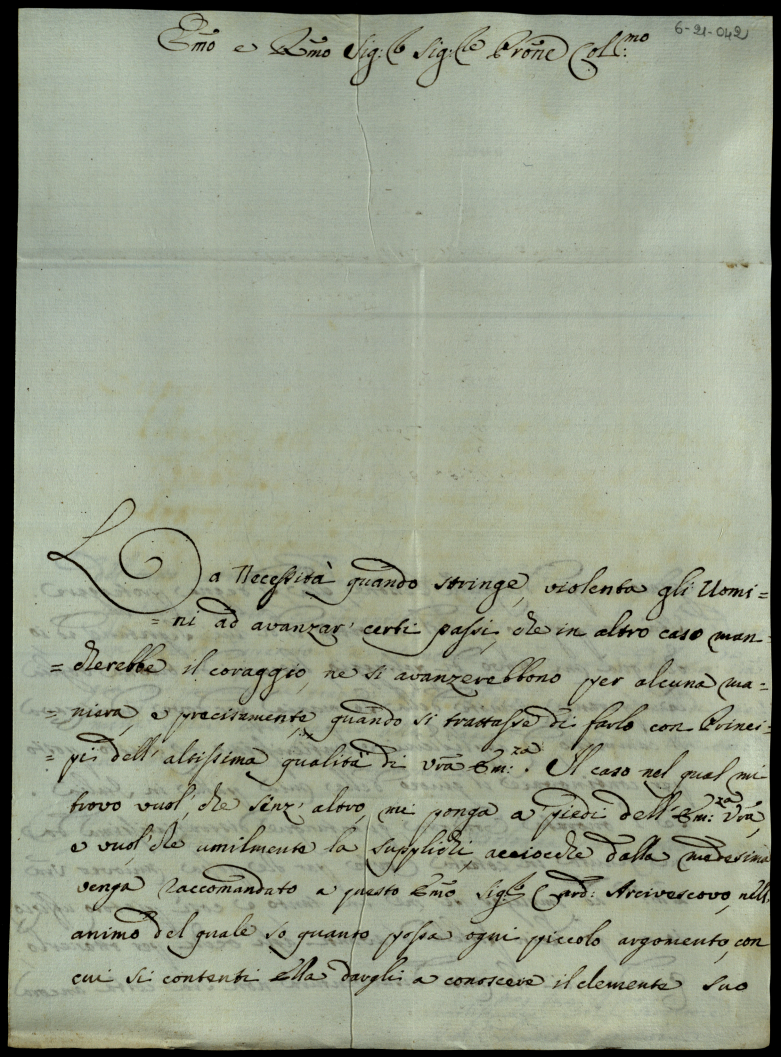 6-21-042
Emõ e Rmõ Sig:r Sig:re Prone Col:mo
La Necessità quando stringe, violenta gli Uomi=
=ni ad avanzar' certi passi, che in altro caso man=
=cherebbe il coraggio, ne si avanzerebbono per alcuna ma=
=niera, e precisamente, quando si trattasse di farlo con Princi=
=pi dell'altissima qualità di Vrã Em:za. Il caso nel qual mi
trovo vuol', che senz' altro, mi ponga a piedi dell'Em:za Vrã,
e vuol' che umilmente la supplichi, acciocche dalla medesima
venga raccomandato a questo Emõ. Sig:re Card: Arcivescovo, nell'
animo del quale so quanto possa ogni piccolo argomento, con
cui si contenti Ella dargli a conoscere il clemente suo